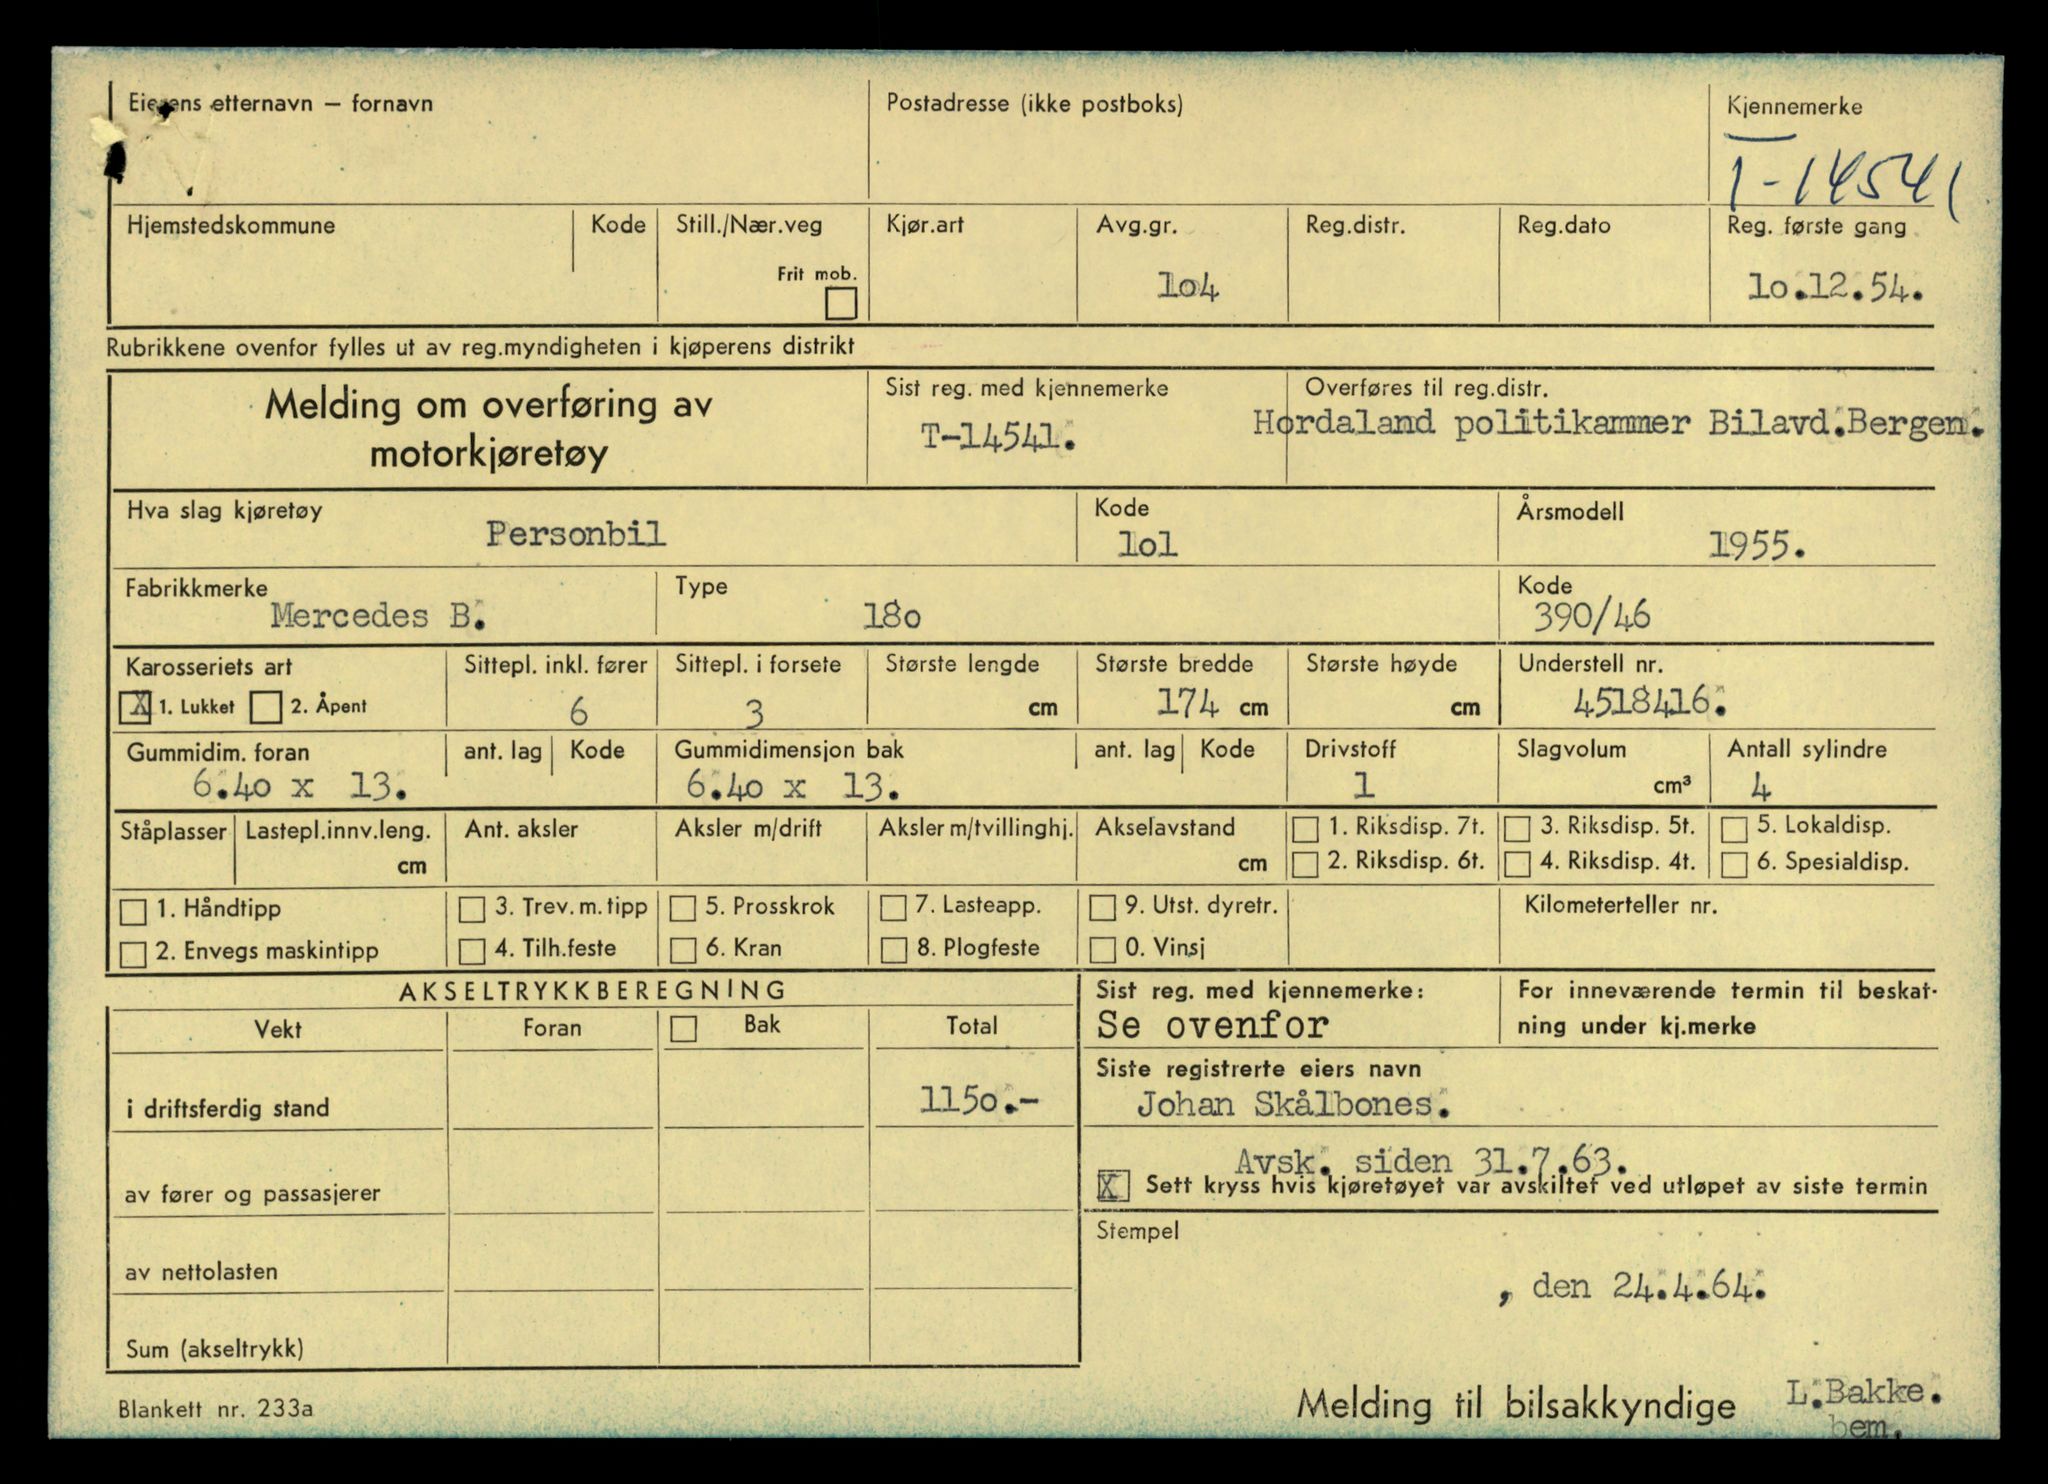 Eierens etternavn – fornavn Postadresse (ikke postboks) Kjennemerke
T-14541
Hjemstedskommune Kode Still./Nær.veg Kjør.art Avg.gr. Reg.distr. Reg.dato Reg. første gang
Frit mob. 1o4 1o.12.54.
Rubrikkene ovenfor fylles ut av reg.myndigheten i kjøperens distrikt
Melding om overføring av Sist reg. med kjennemerke Overføres til reg.distr.
motorkjøretøy T-14541. Hordaland politikammer Bilavd.Bergen.
Hva slag kjøretøy Kode Årsmodell
Personbil 1o1 1955.
Fabrikkmerke Type Kode
Mercedes B. 18o 390/46
Karosseriets art Sittepl. inkl. fører Sittepl. i forsete Største lengde Største bredde Største høyde Understell nr.
X 1. Lukket 2. Åpent 6 3 cm 174 cm cm 4518416.
Gummidim. foran ant. lag Kode Gummidimensjon bak ant. lag Kode Drivstoff Slagvolum Antall sylindre
6.40 x 13. 6.40 x 13. 1 cm³ 4
Ståplasser Lastepl.innv.leng. Ant. aksler Aksler m/drift Aksler m/tvillinghj. Akselavstand 1. Riksdisp. 7t. 3. Riksdisp. 5t. 5. Lokaldisp.
cm cm 2. Riksdisp. 6t. 4. Riksdisp. 4t. 6. Spesialdisp.
1. Håndtipp 3. Trev. m. tipp 5. Prosskrok 7. Lasteapp. 9. Utst. dyretr. Kilometerteller nr.
2. Envegs maskintipp 4. Tilh.feste 6. Kran 8. Plogfeste 0. Vinsj
AKSELTRYKKBEREGNING Sist reg. med kjennemerke: For inneværende termin til beskat-
Vekt Foran Bak Total Se ovenfor ning under kj.merke
Siste registrerte eiers navn
i driftsferdig stand 115o.- Johan Skålbones.
Avsk. siden 31.7.63.
av fører og passasjerer X Sett kryss hvis kjøretøyet var avskiltet ved utløpet av siste termin
Stempel
av nettolasten , den 24.4.64.
Sum (akseltrykk)
Blankett nr. 233a Melding til bilsakkyndige L.Bakke.
bem.